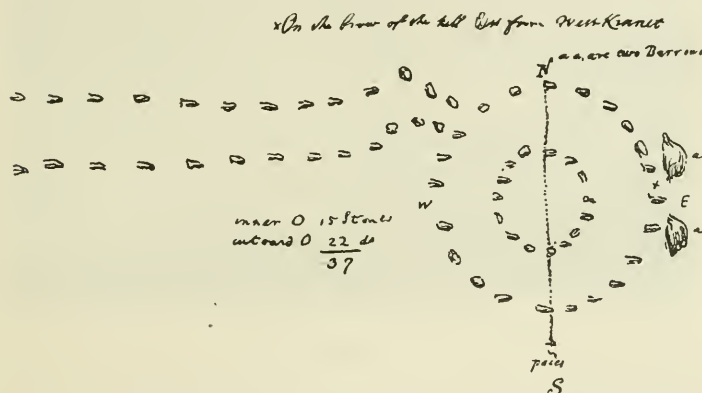 x On the brow of the hill East from West Kennet
N
a a, are two Barrows
a
x
W
E
inner O 15 Stones
outward O 22 do
37
a
paces
S